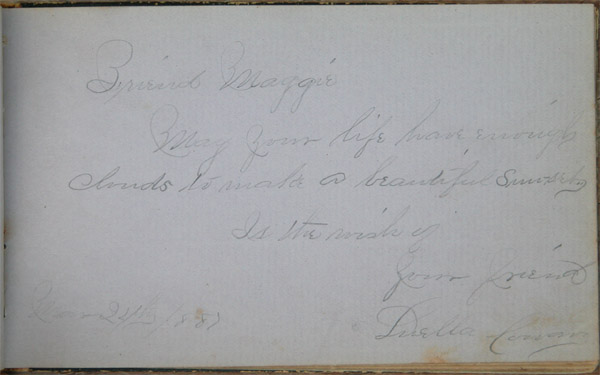 Friend Maggie
May your life have enough
clouds to make a beautiful Sunset
Is the wish of
Your friend
Luella
24 1887